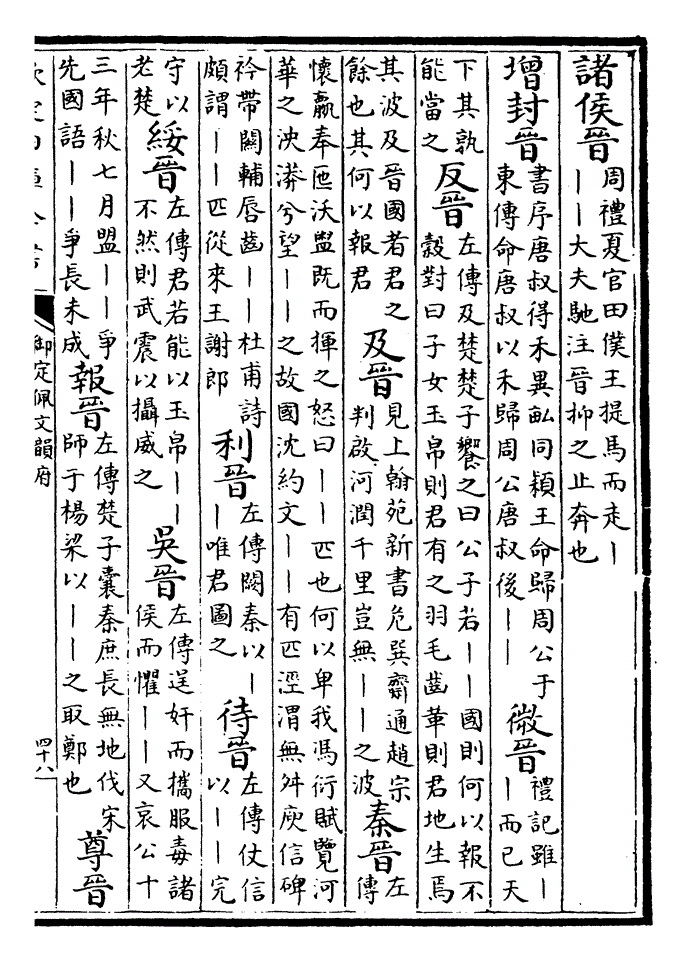 諸侯晉 周禮夏官田僕王提馬而走丨
丨丨大夫馳注晉抑之止奔也
增封晉 書序唐叔得禾異畝同穎王命歸周公于
東傳命唐叔以禾歸周公唐叔後丨丨
微晉 禮記雖丨
丨而已天
下其孰
能當之
反晉 左傳及楚楚子饗之曰公子若丨丨國則何以報不
穀對曰子女玉帛則君有之羽毛齒革則君地生焉
其波及晉國者君之
餘也其何以報君
及晉 見上翰苑新書危巽齋通趙宗
判啟河潤千里豈無丨丨之波
秦晉 左
傳
懷嬴奉匜沃盥既而揮之怒曰丨丨匹也何以卑我馮衍賦覽河
華之泱漭兮望丨丨之故國沈約文丨丨有匹涇渭無舛庾信碑
衿帶關輔唇齒丨丨杜甫詩
頗謂丨丨匹從來王謝郎
利晉 左傳闕秦以丨
丨唯君圖之
待晉 左傳仗信
以丨丨完
守以
老楚
綏晉 左傳君若能以玉帛丨丨
不然則武震以攝威之
吳晉 左傳逞奸而攜服毒諸
侯而懼丨丨又哀公十
三年秋七月盟丨丨爭
先國語丨丨爭長未成
報晉 左傳楚子囊秦庶長無地伐宋
師于楊梁以丨丨之取鄭也
尊晉
御定佩文韻府
四十八